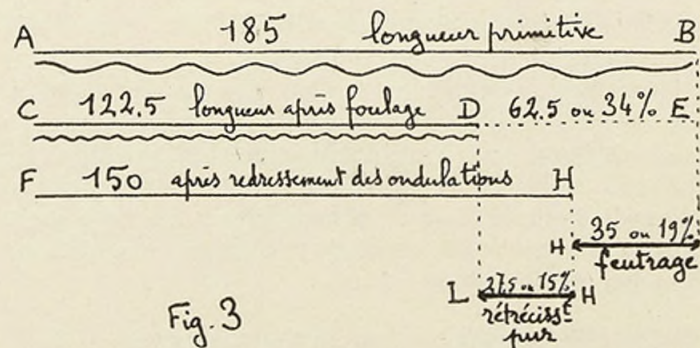 A 185 longueur primitive B
C 122.5 longueur après foulage D 62.5 ou 34% E
F 150 après redressement des ondulations H
H 35 ou 19%
feutrage
L 27.5 ou 15% H
rétréciss.t
pur
Fig. 3